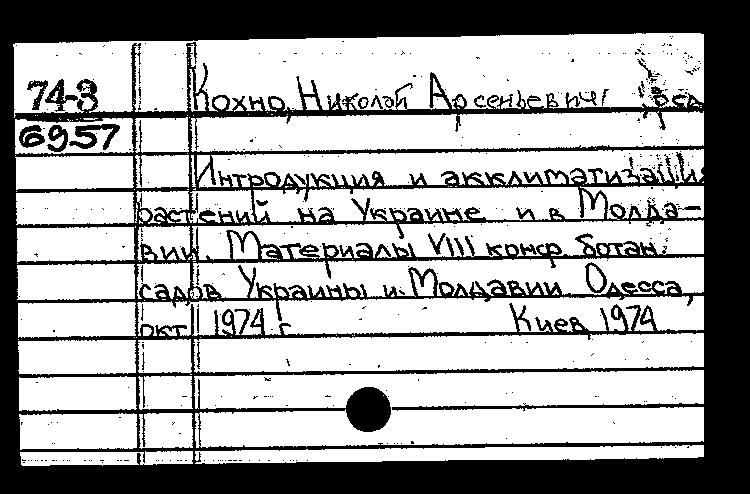 74-3 Кохно, Николай Арсеньевич ред
6957
Интродукция и акклиматизация
растений на Украине и в Молда-
вии. Материалы VIII конф. ботан.
садов Украины и Молдавии Одесса,
окт. 1974 г. Киев, 1974